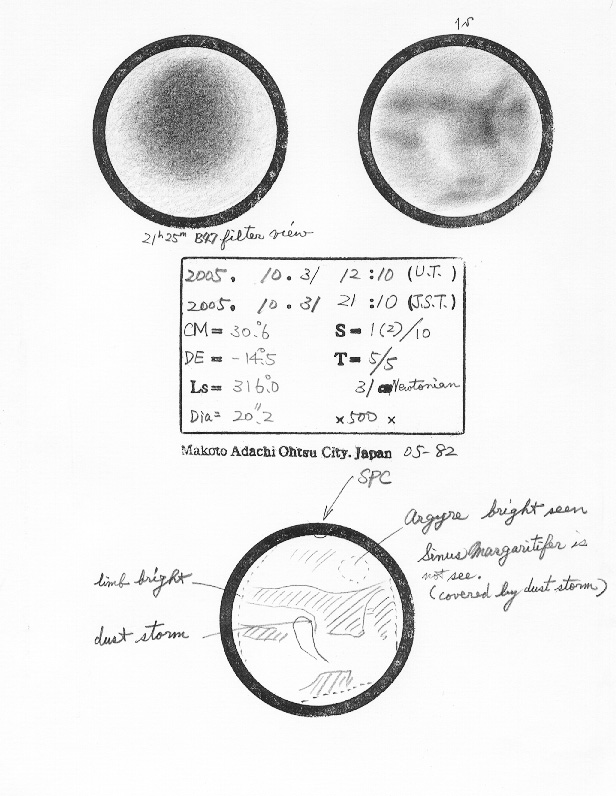 21ʰ25ᵐ B47 filter view
2005. 10. 31 12:10 (U.T.)
2005. 10. 31 21:10 (J.S.T.)
CM= 30.°6 S= 1(2)/10
DE= -14.°5 T= 5/5
Ls= 316.°0 31 Newtonian
Dia= 20."2 ×500 ×
Makoto Adachi Ohtsu City. Japan 05-82
SPC
Argyre bright seen
Sinus Margaritifer is
not see.
(covered by dust storm)
limb bright
dust storm